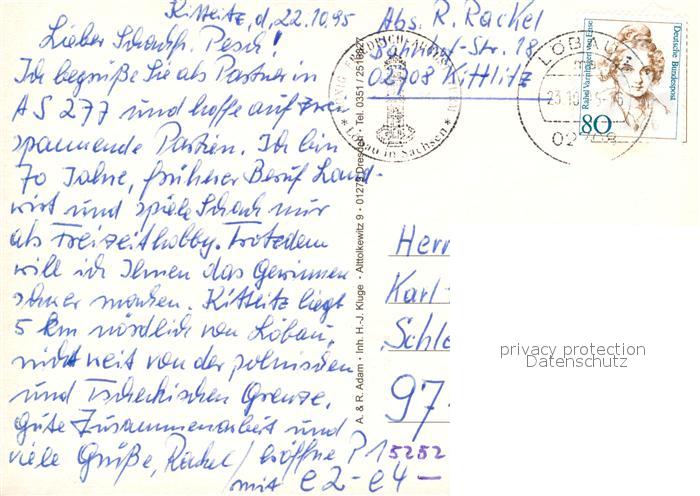 Kittlitz, d. 22.10.95
Lieber Schachfr. Pesch!
Ich begrüße Sie als Partner in
AS 277 und hoffe auf zwei
spannende Partien. Ich bin
70 Jahre, früherer Beruf Land-
wirt und spiele Schach nur
als Freizeithobby. Trotzdem
will ich Ihnen das Gewinnen
schwer machen. Kittlitz liegt
5 km nördlich von Löbau,
nicht weit von der polnischen
und Tschechischen Grenze.
Gute Zusammenarbeit und
viele Grüße, Rackel / eröffne P 1
mit e2-e4 –
5252
Abs. R. Rackel
Bahnhof-Str. 18
02708 Kittlitz
* Löbau in Sachsen *
LÖBAU
23.10.
02708
Deutsche Bundespost
Rahel Varnhagen von Ense
80
A. & R. Adam · Inh. H.-J. Kluge · Alttolkewitz 9 · 01279 Dresden · Tel. 0351 / 2518827
Herr
Karl-
Schle
97
privacy protection
Datenschutz